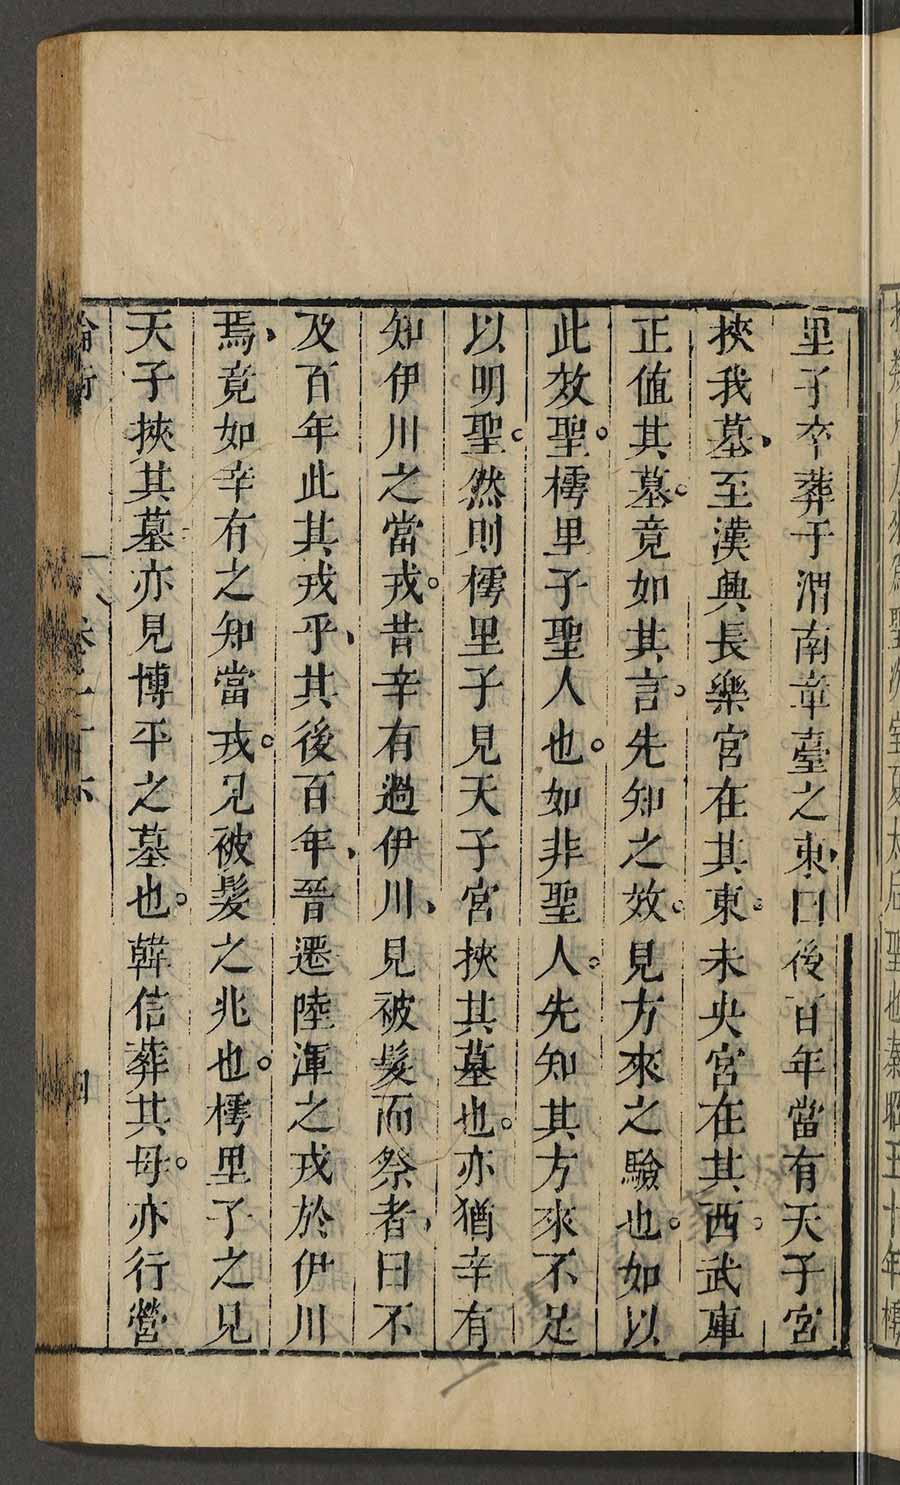 里子卒葬于渭南章臺之東、曰後百年當有天子宮
挾我墓、至漢興長樂宮在其東。未央宮在其西。武庫
正值其墓。竟如其言。先知之效。見方來之驗也。如以
此效聖。樗里子聖人也。如非聖人。先知其方來不足
以明聖。然則樗里子見天子宮挾其墓也。亦猶辛有
知伊川之當戎。昔辛有過伊川、見被髮而祭者、曰不
及百年此其戎乎、其後百年、晉遷陸渾之戎於伊川
焉、竟如辛有之知當戎。見被髮之兆也。樗里子之見
天子挾其墓亦見博平之墓也。韓信葬其母。亦行營
論衡 卷二十六 四